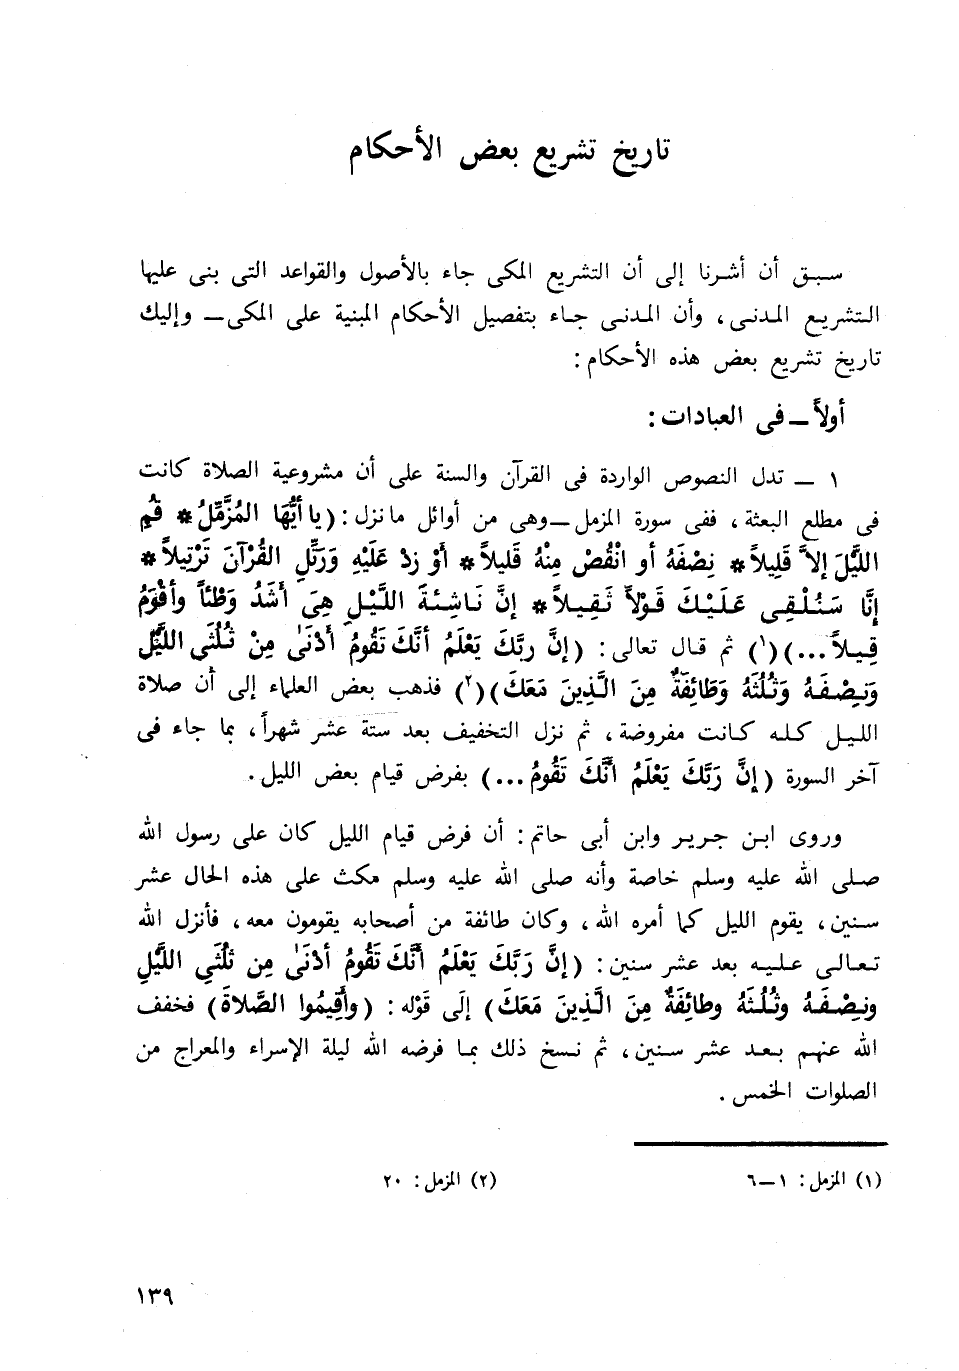 تاريخ تشريع بعض الأحكام
سبق أن أشرنا إلى أن التشريع المكى جاء بالأصول والقواعد التى بنى عليها
التشريع المدنى، وأن المدنى جاء بتفصيل الأحكام المبنية على المكى — وإليك
تاريخ تشريع بعض هذه الأحكام:
أولاً — فى العبادات:
١ — تدل النصوص الواردة فى القرآن والسنة على أن مشروعية الصلاة كانت
فى مطلع البعثة، ففى سورة المزمل — وهى من أوائل ما نزل: (يا أَيُّهَا المُزَّمِّلُ * قُمِ
اللَّيْلَ إلاَّ قَلِيلاً * نِصْفَهُ أو انْقُصْ مِنْهُ قَلِيلاً * أوْ زِدْ عَلَيْهِ وَرَتِّلِ القُرْآنَ تَرْتِيلاً *
إنَّا سَنُلْقِى عَلَيْكَ قَوْلاً ثَقِيلاً * إنَّ نَاشِئَةَ اللَّيْلِ هِىَ أشَدُّ وَطْئاً وأقْوَمُ
قِيلاً...)(١) ثم قال تعالى: (إنَّ ربَّكَ يَعْلَمُ أنَّكَ تَقُومُ أَدْنَىٰ مِنْ ثُلُثَىِ اللَّيْلِ
وَنِصْفَهُ وَثُلُثَهُ وَطَائِفَةٌ مِنَ الَّذِينَ مَعَكَ)(٢) فذهب بعض العلماء إلى أن صلاة
الليل كله كانت مفروضة، ثم نزل التخفيف بعد ستة عشر شهراً، بما جاء فى
آخر السورة (إنَّ رَبَّكَ يَعْلَمُ أنَّكَ تَقُومُ...) بفرض قيام بعض الليل.
وروى ابن جرير وابن أبى حاتم: أن فرض قيام الليل كان على رسول الله
صلى الله عليه وسلم خاصة وأنه صلى الله عليه وسلم مكث على هذه الحال عشر
سنين، يقوم الليل كما أمره الله، وكان طائفة من أصحابه يقومون معه، فأنزل الله
تعالى عليه بعد عشر سنين: (إنَّ رَبَّكَ يَعْلَمُ أنَّكَ تَقُومُ أدْنَىٰ مِن ثُلُثَىِ اللَّيْلِ
ونِصْفَهُ وثُلُثَهُ وطائِفَةٌ مِنَ الَّذِينَ مَعَكَ) إلَى قَوْله: (وأَقِيمُوا الصَّلاةَ) فخفف
الله عنهم بعد عشر سنين، ثم نسخ ذلك بما فرضه الله ليلة الإسراء والمعراج من
الصلوات الخمس.
(١) المزمل: ١—٦
(٢) المزمل: ٢٠
١٣٩